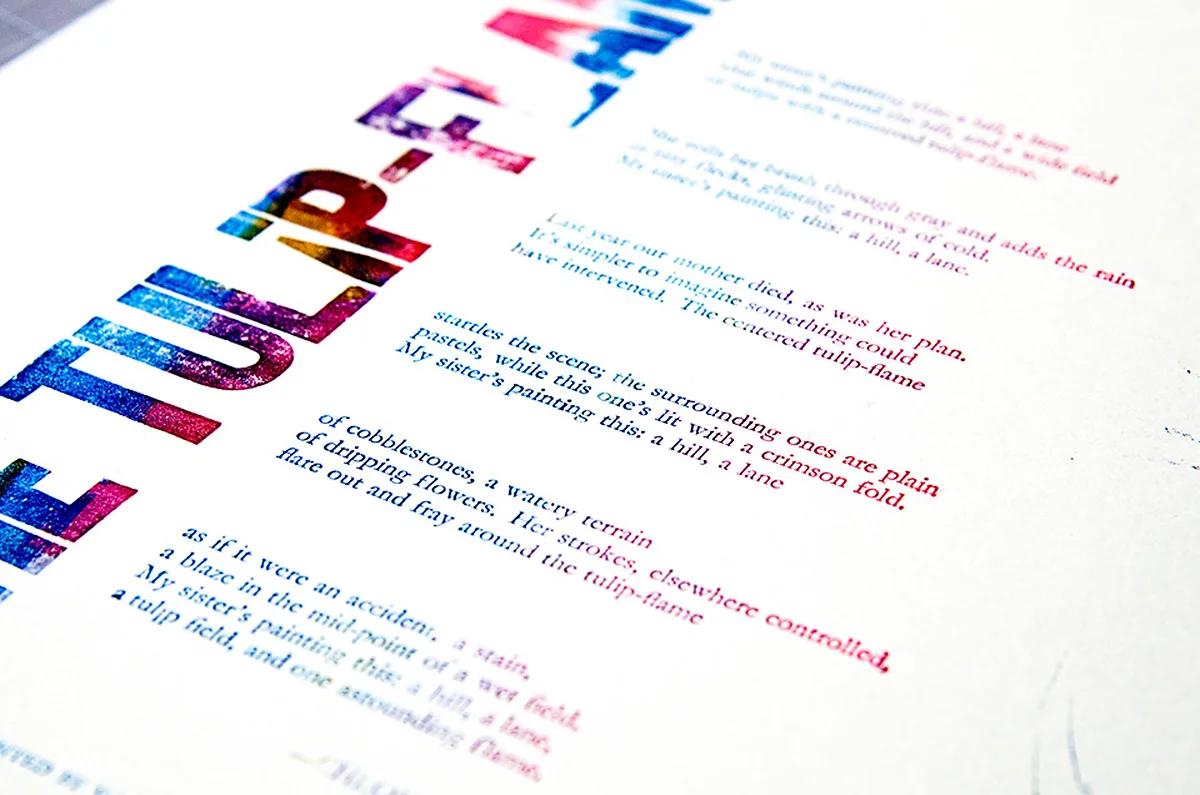 THE TULIP-FLAM
My sister's painting this: a hill, a lane
that winds around the hill, and a wide field
of tulips with a centered tulip-flame.
She pulls her brush through gray and adds the rain
in tiny flecks, glinting arrows of cold.
My sister's painting this: a hill, a lane.
Last year our mother died, as was her plan.
It's simpler to imagine something could
have intervened. The centered tulip-flame
startles the scene; the surrounding ones are plain
pastels, while this one's lit with a crimson fold.
My sister's painting this: a hill, a lane
of cobblestones, a watery terrain
of dripping flowers. Her strokes, elsewhere controlled,
flare out and fray around the tulip-flame
as if it were an accident, a stain,
a blaze in the mid-point of a wet field.
My sister's painting this: a hill, a lane,
a tulip field, and one astounding flame.